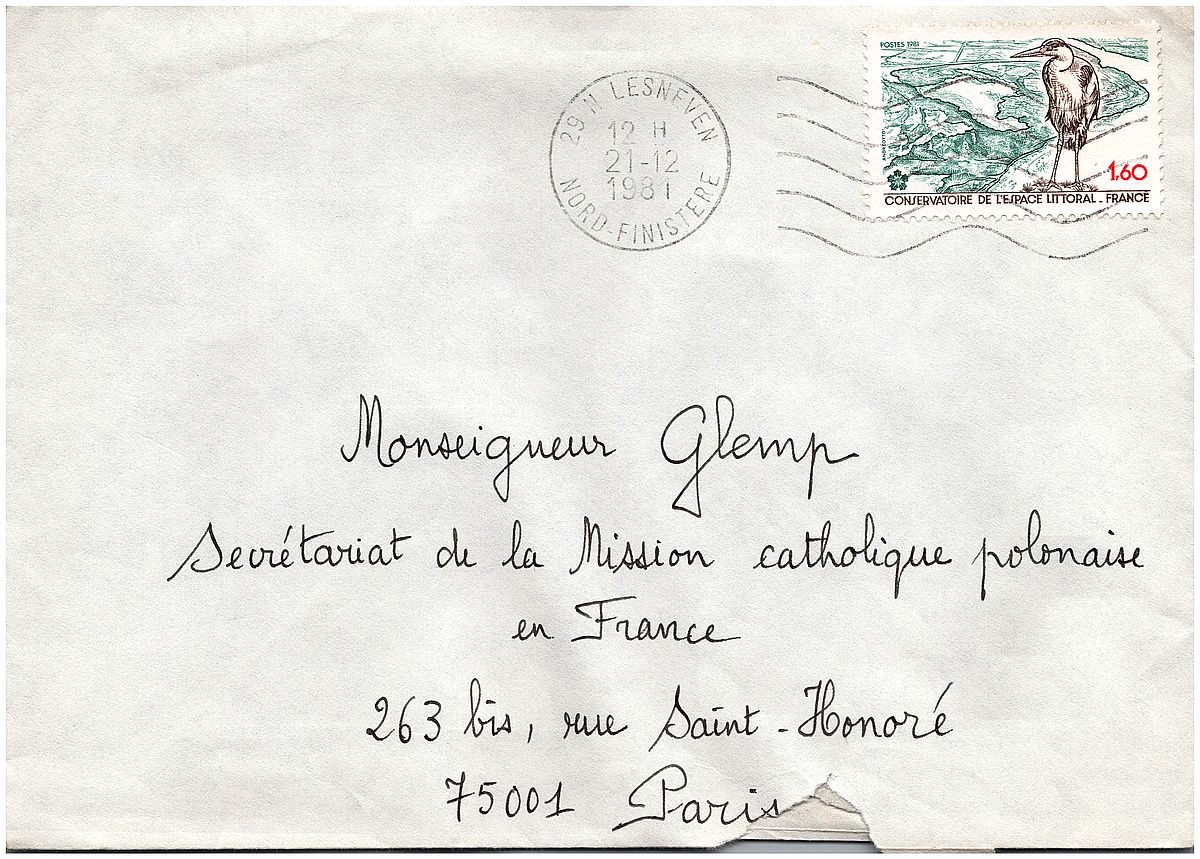 29 N LESNEVEN
12 H
21-12
1981
NORD-FINISTERE
POSTES 1981
1,60
CONSERVATOIRE DE L'ESPACE LITTORAL - FRANCE
Monseigneur Glemp
Secrétariat de la Mission catholique polonaise
en France
263 bis, rue Saint-Honoré
75001 Paris